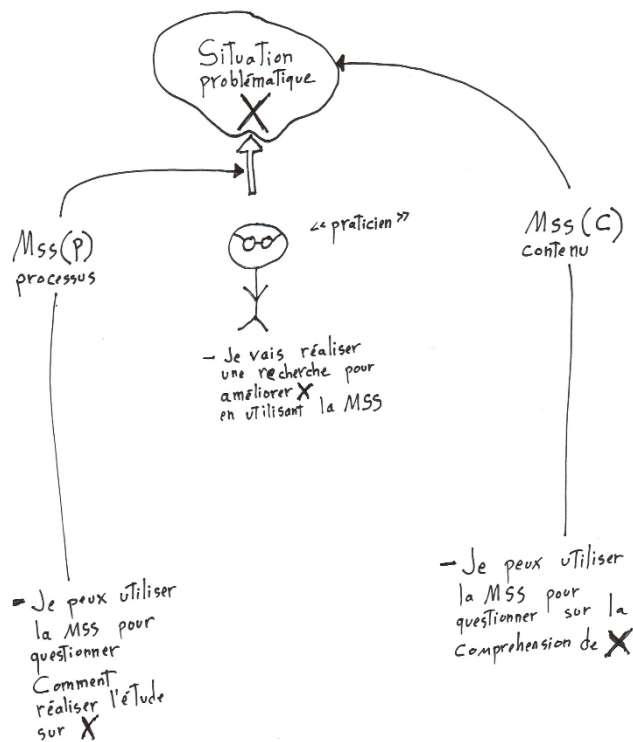 Situation
problématique
X
Mss(P)
processus
<< praticien >>
Mss(C)
contenu
- Je vais réaliser
une recherche pour
améliorer X
en utilisant la MSS
- Je peux utiliser
la MSS pour
questionner
Comment
réaliser l'étude
sur X
- Je peux utiliser
la MSS pour
questionner sur la
Comprehension de X